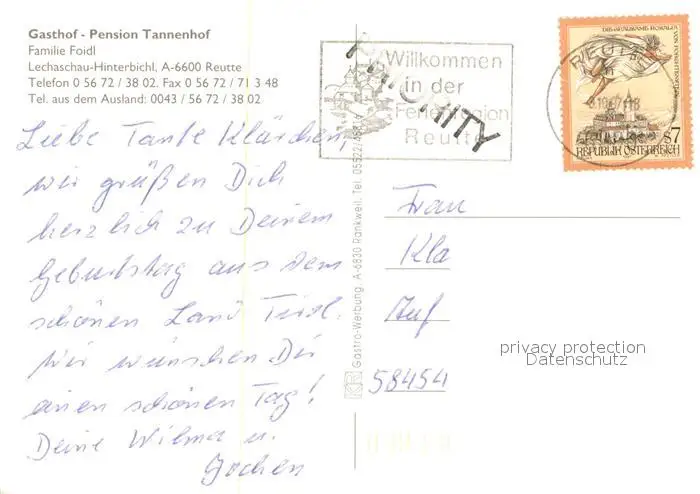 Gasthof - Pension Tannenhof
Familie Foidl
Lechaschau-Hinterbichl, A-6600 Reutte
Telefon 0 56 72 / 38 02. Fax 0 56 72 / 71 3 48
Tel. aus dem Ausland: 0043 / 56 72 / 38 02
Liebe Tante Klärchen,
wir grüßen Dich
herzlich zu Deinem
Geburtstag aus dem
schönen Land Tirol.
Wir wünschen Dir
einen schönen Tag!
Deine Wilma u.
Jochen
Gastro-Werbung, A-6830 Rankweil, Tel. 05522/
Willkommen
in der
Ferienregion
Reutte
PRIORITY
REUTTE
S7
REPUBLIK ÖSTERREICH
Frau
Kla
Auf
58454
privacy protection
Datenschutz